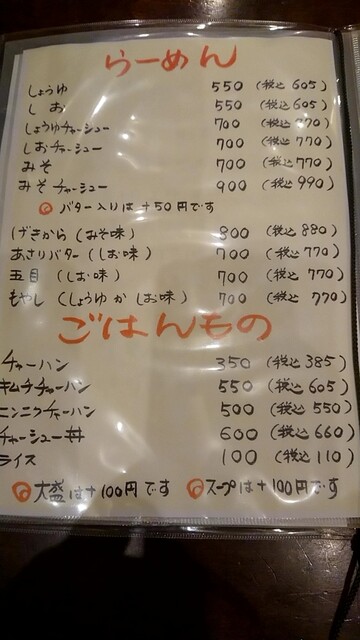 らーめん
しょうゆ 550 (税込 605)
しお 550 (税込 605)
しょうゆチャーシュー 700 (税込 770)
しおチャーシュー 700 (税込 770)
みそ 700 (税込 770)
みそチャーシュー 900 (税込 990)
バター入りは+50円です
げきから (みそ味) 800 (税込 880)
あさりバター (しお味) 700 (税込 770)
五目 (しお味) 700 (税込 770)
もやし (しょうゆ か しお味) 700 (税込 770)
ごはんもの
チャーハン 350 (税込 385)
キムチチャーハン 550 (税込 605)
ニンニクチャーハン 500 (税込 550)
チャーシュー丼 600 (税込 660)
ライス 100 (税込 110)
大盛は+100円です スープは+100円です